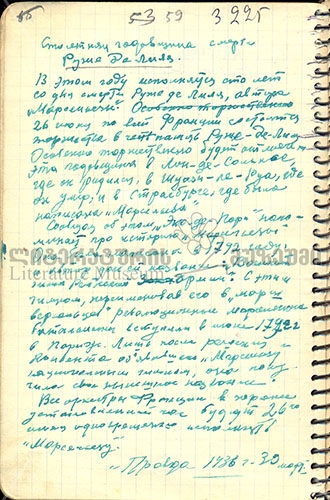 86 53 59 3225
Столетняя годовщина смерти
Руже де Лиля.
В этом году исполняется сто лет
со дня смерти Руже де Лиля, автора
„Марсельезы". Особенно торжественно
26 июня по всей Франции состоятся
торжества в честь памяти Руже-де-Лиля.
Особенно торжественно будет отмечена
эта годовщина в Лон-де-Сонье,
где он родился, в Шуази-ле-Руа, где
он умер, и в Страсбурге, где была
написана „Марсельеза".
Сообщая об этом, „Эко-де-Пари" напо-
минает про историю „Марсельезы"
1792
ლიტერატურის მუზეუმი
Literature Museum
армии". С этим
гимном, переименовав его в „марш
революционные марсельские
батальоны вступили в июле 1792 г
в Париж. Лишь после
Конвента объявившего „Марсельезу
национальным гимном, она полу-
чила свое нынешнее название.
Все оркестры Франции в заранее
установленный час будут 26-го
июня одновременно исполнять
„Марсельезу".
„Правда" 1936 г. 30 март.